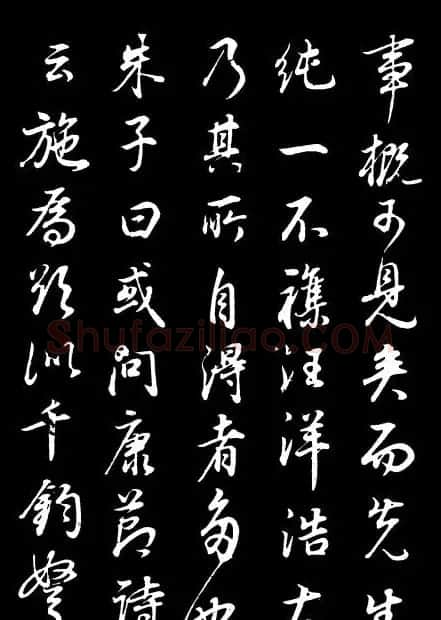 事概可見矣而先生
純一不襍汪洋浩大
乃其所自得者多也
朱子曰或問康节詩
云施為欲似千鈞弩
Shufaziliao.COM